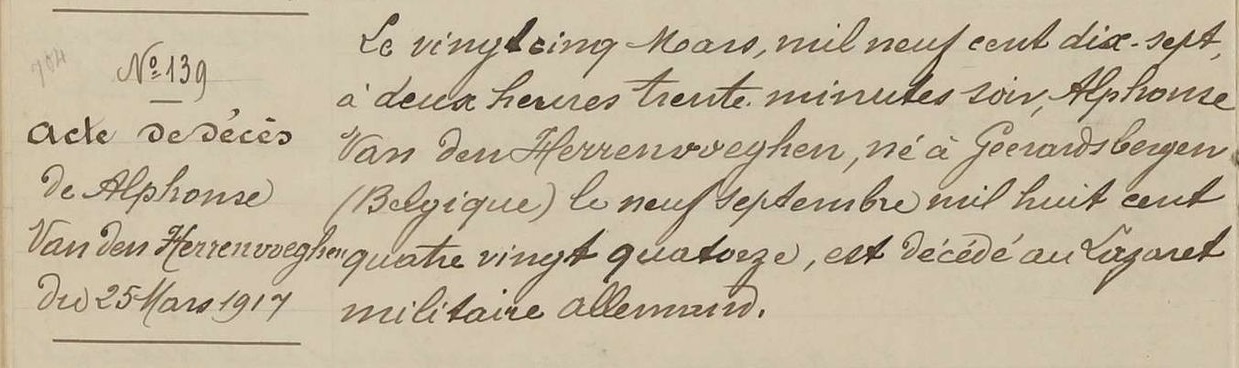 704
Nº 139
Acte de décès
de Alphonse
Van den Herrenweghen
du 25 Mars 1917
Le vingt cinq Mars, mil neuf cent dix-sept,
à deux heures trente minutes soir, Alphonse
Van den Herrenweghen, né à Geerardsbergen
(Belgique) le neuf septembre mil huit cent
quatre vingt quatorze, est décédé au Lazaret
militaire allemand.